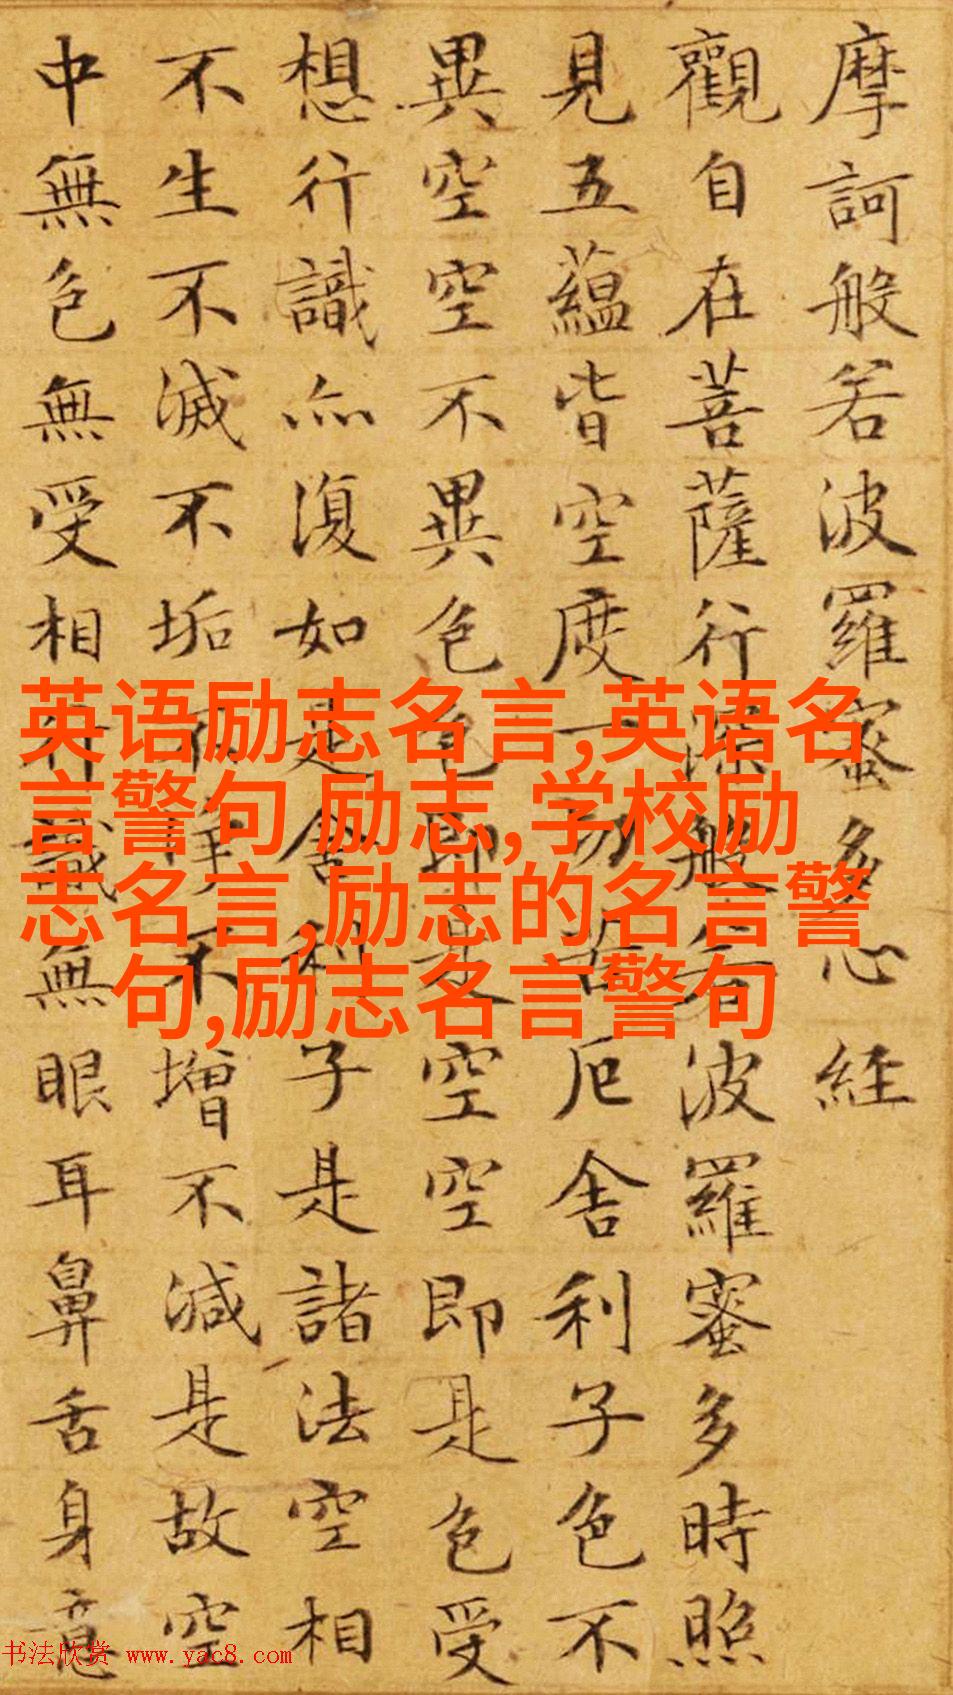 摩訶般若波羅蜜多心經
觀自在菩薩行深般若波羅蜜多時照
見五蘊皆空度一切苦厄舍利子色不
異空空不異色色即是空空即是色受
想行識亦復如是舍利子是諸法空相
不生不滅不垢不淨不增不減是故空
中無色無受相行識無眼耳鼻舌身意
英语励志名言,英语名
言警句 励志,学校励
志名言,励志的名言警
句,励志名言警句
书法欣赏 www.yac8.com